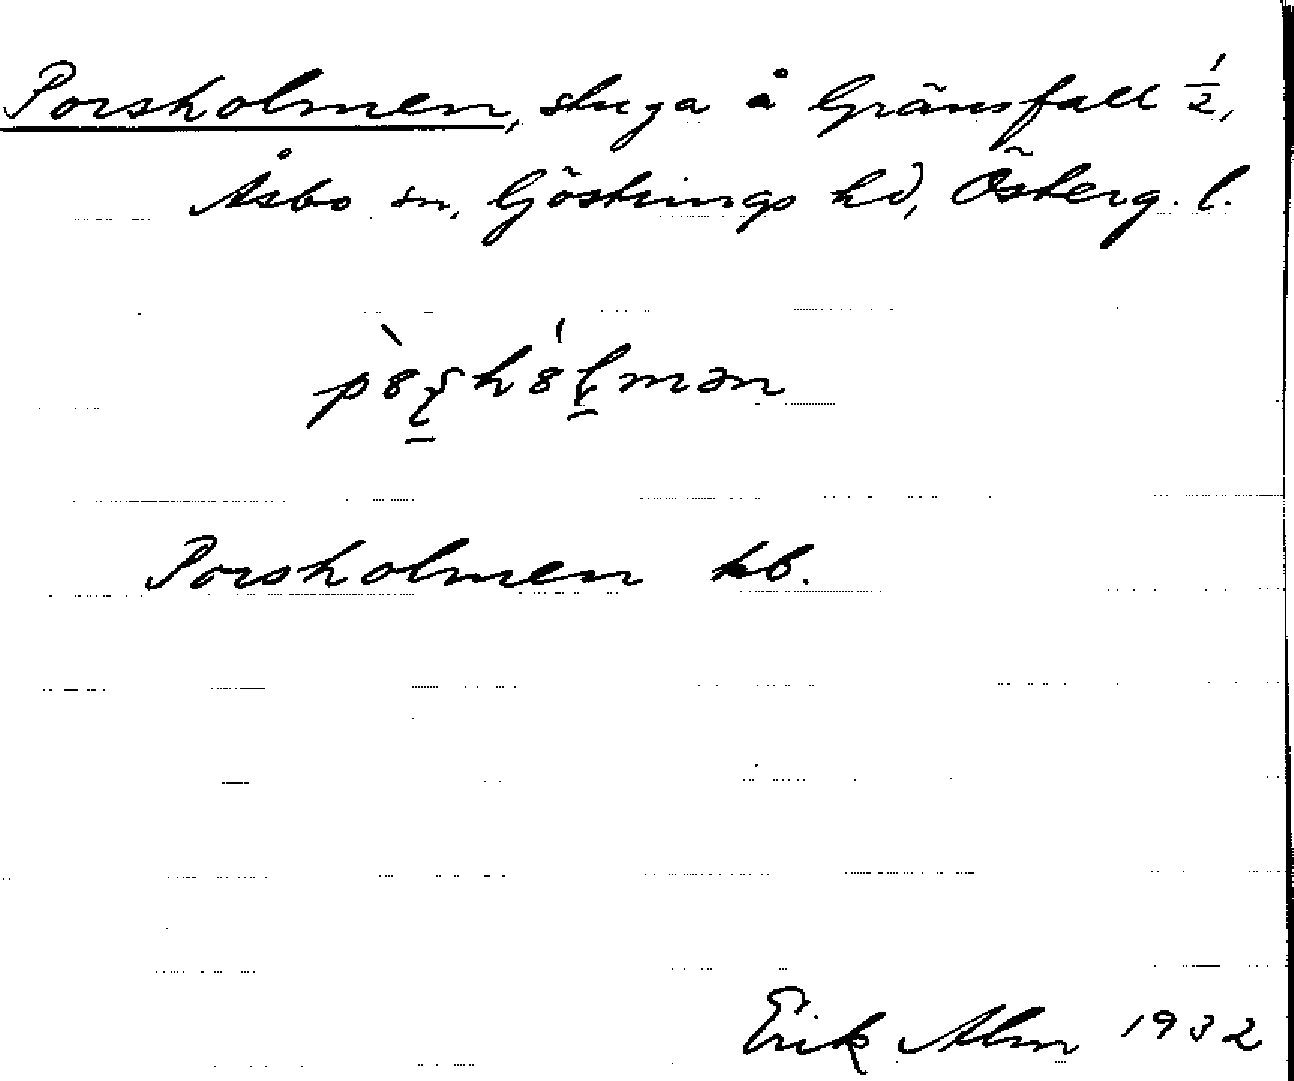 Porsholmen, stuga å Gränsfall 1/2,
Åsbo sn, Göstrings hd, Österg. l.
Porsholmen kb.
Erik Alm 1932